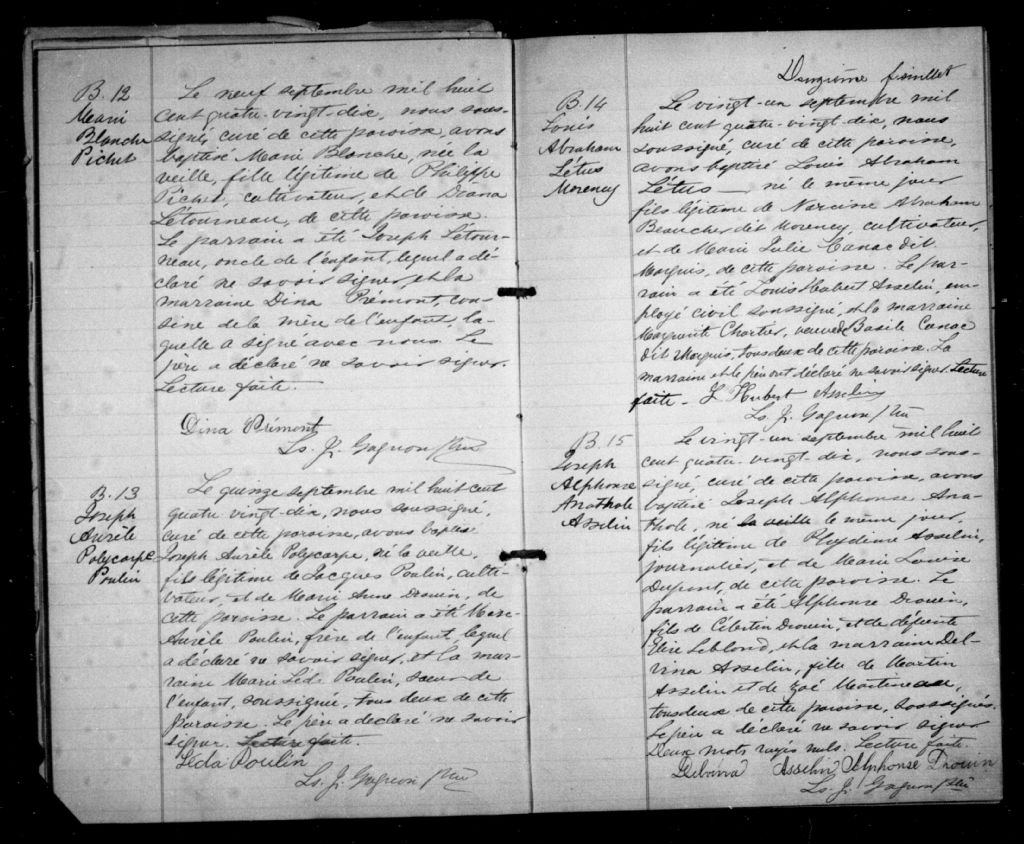 B. 12
Marie
Blanche
Pichet
Le neuf septembre mil huit
cent quatre-vingt-dix, nous sous-
signé, curé de cette paroisse, avons
baptisé Marie Blanche, née la
veille, fille légitime de Philippe
Pichet, cultivateur, et de Diana
Létourneau, de cette paroisse.
Le parrain a été Joseph Létour-
neau, oncle de l'enfant, lequel a dé-
claré ne savoir signer, et la
marraine Dina Prémont, cou-
sine de la mère de l'enfant, la-
quelle a signé avec nous. Le
père a déclaré ne savoir signer.
Lecture faite.
Dina Prémont
Ls. J. Gagnon Ptre
B. 13
Joseph
Aurèle
Polycarpe
Poulin
Le quinze septembre mil huit cent
quatre vingt-dix, nous soussigné,
curé de cette paroisse, avons baptisé
Joseph Aurèle Polycarpe, né la veille,
fils légitime de Jacques Poulin, culti-
vateur, et de Marie Anne Drouin, de
cette paroisse. Le parrain a été
Aurèle Poulin, frère de l'enfant, lequel
a déclaré ne savoir signer, et la mar-
raine Marie Léda Poulin, sœur de
l'enfant, soussignée, tous deux de cette
paroisse. Le père a déclaré ne savoir
signer. Lecture faite.
Léda Poulin
Ls. J. Gagnon Ptre
Onzième feuillet
B. 14
Louis
Abraham
Létus
Morency
Le vingt-un septembre mil
huit cent quatre-vingt-dix, nous
soussigné, curé de cette paroisse,
avons baptisé Louis Abraham
Létus — né le même jour
fils légitime de Narcisse Abraham
Beaucher dit Morency, cultivateur,
et de Marie Julie Canac dit
Marquis, de cette paroisse. Le par-
rain a été Louis Hubert Asselin, em-
ployé civil soussigné, et la marraine
Marguerite Chartier, veuve de Basile Canac
dit Marquis, tous deux de cette paroisse. La
marraine et le père ont déclaré ne savoir signer. Lecture
faite - L Hubert Asselin
Ls. J. Gagnon Ptre
B. 15
Joseph
Alphonse
Anathole
Asselin
Le vingt-un septembre mil huit
cent quatre-vingt-dix, nous sous-
signé, curé de cette paroisse, avons
baptisé Joseph Alphonse Ana-
thole, né la veille le même jour,
fils légitime de Asselin,
journalier, et de Marie Louise
Dupont, de cette paroisse. Le
parrain a été Alphonse Drouin,
fils de Célestin Drouin, et de défunte
Leblond, et la marraine Del-
vina Asselin, fille de Martin
Asselin et de Zoé Martineau,
tous deux de cette paroisse, soussignés.
Le père a déclaré ne savoir signer
Deux mots rayés nuls. Lecture faite.
Asselin Alphonse Drouin
Ls. J. Gagnon Ptre